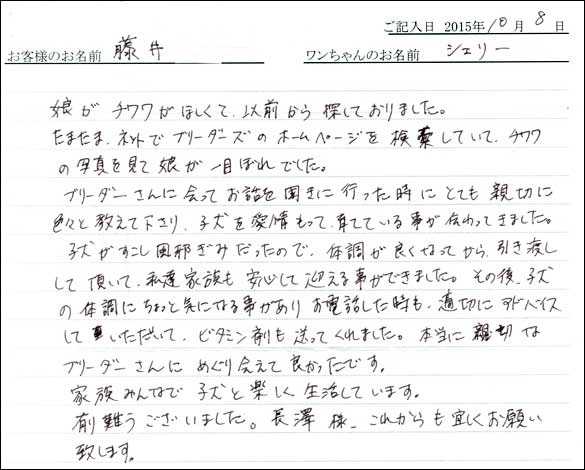 ご記入日 2015年10月8日
お客様のお名前 藤井 ワンちゃんのお名前 シェリー
娘がチワワがほしくて、以前から探しておりました。
たまたま、ネットでブリーダーズのホームページを検索していて、チワワ
の写真を見て娘が一目ぼれでした。
ブリーダーさんに会ってお話を聞きに行った時にとても親切に
色々と教えて下さり、子犬を愛情もって、育てている事が伝わってきました。
子犬がすこし風邪ぎみだったので、体調が良くなってから、引き渡し
して頂いて、私達家族も安心して迎える事ができました。その後、子犬
の体調にちょっと気になる事があり お電話した時も、適切にアドバイス
していただいて、ビタミン剤も送ってくれました。本当に親切な
ブリーダーさんにめぐり会えて良かったです。
家族みんなで子犬と楽しく生活しています。
有難うございました。長澤様、これからも宜しくお願い
致します。